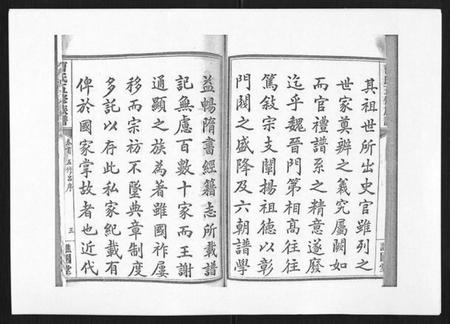 其祖世所出史官雖列之
世家奠辨之義究屬闕如
而官禮譜系之精意遂廢
迄乎魏晉門第相高往往
篤敘宗支闡揚祖德以彰
門閥之盛降及六朝譜學
益暢隋書經籍志所載譜
記無慮百數十家而王謝
通顯之族為著雖國祚屢
移而宗祊不墜典章制度
多託以存此私家紀載有
俾於國家掌故者也近代
卷首 五修吕序
三